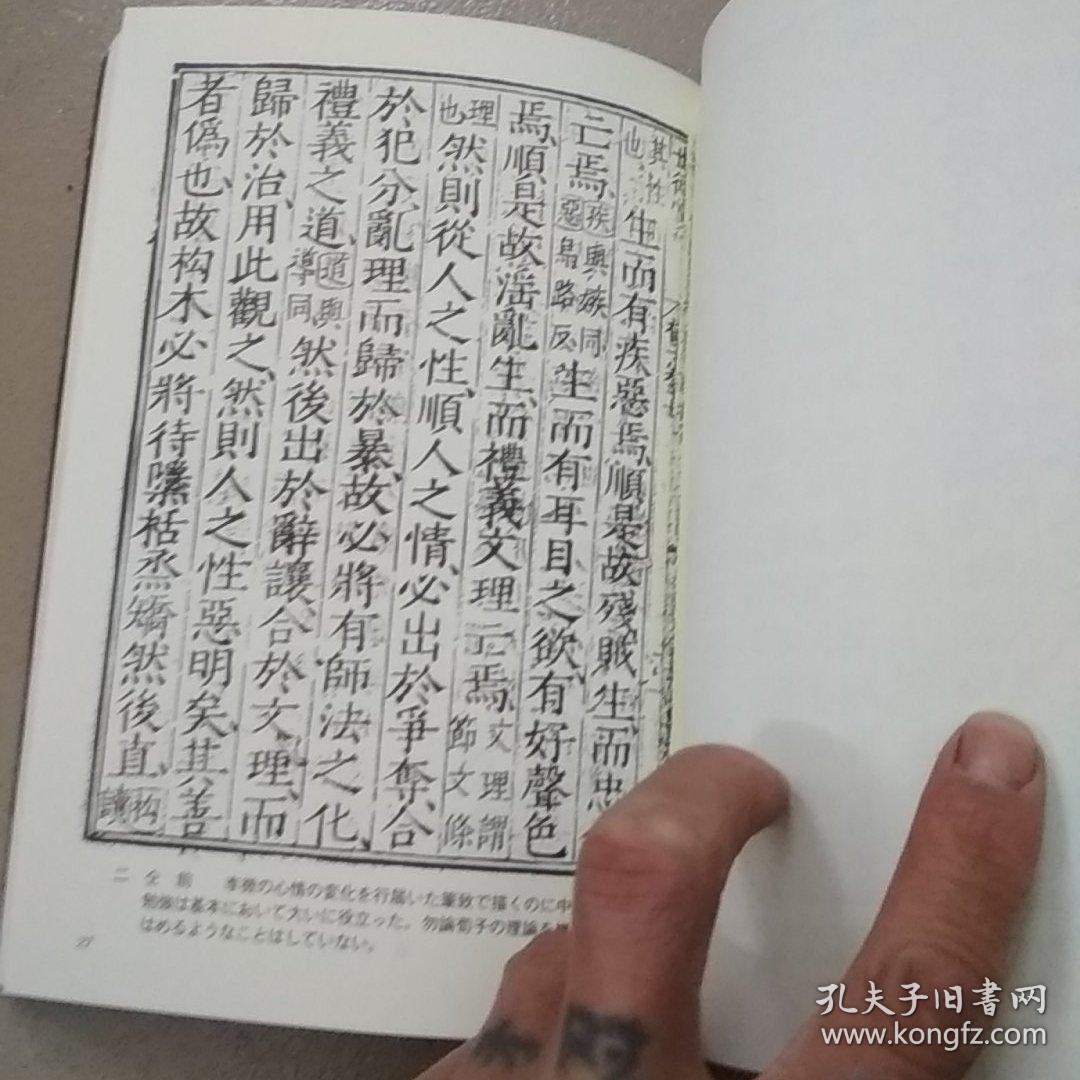 其性也生而有疾惡焉、順是故殘賊生、而忠
亡焉、疾與嫉同惡烏路反生而有耳目之欲、有好聲色
焉、順是故淫亂生、而禮義文理亡焉、文理謂節文條
理也然則從人之性、順人之情、必出於爭奪、合
於犯分亂理而歸於暴、故必將有師法之化
禮義之道、道與導同然後出於辭讓、合於文理、而
歸於治、用此觀之、然則人之性惡明矣、其善
者僞也、故构木必將待檃栝烝矯然後直、构讀
二 仝 前 李徴の心情の変化を行届いた筆致で描くのに中
勉強は基本において大いに役立った。勿論荀子の理論を
はめるようなことはしていない。
27
孔夫子旧书网
www.kongfz.com